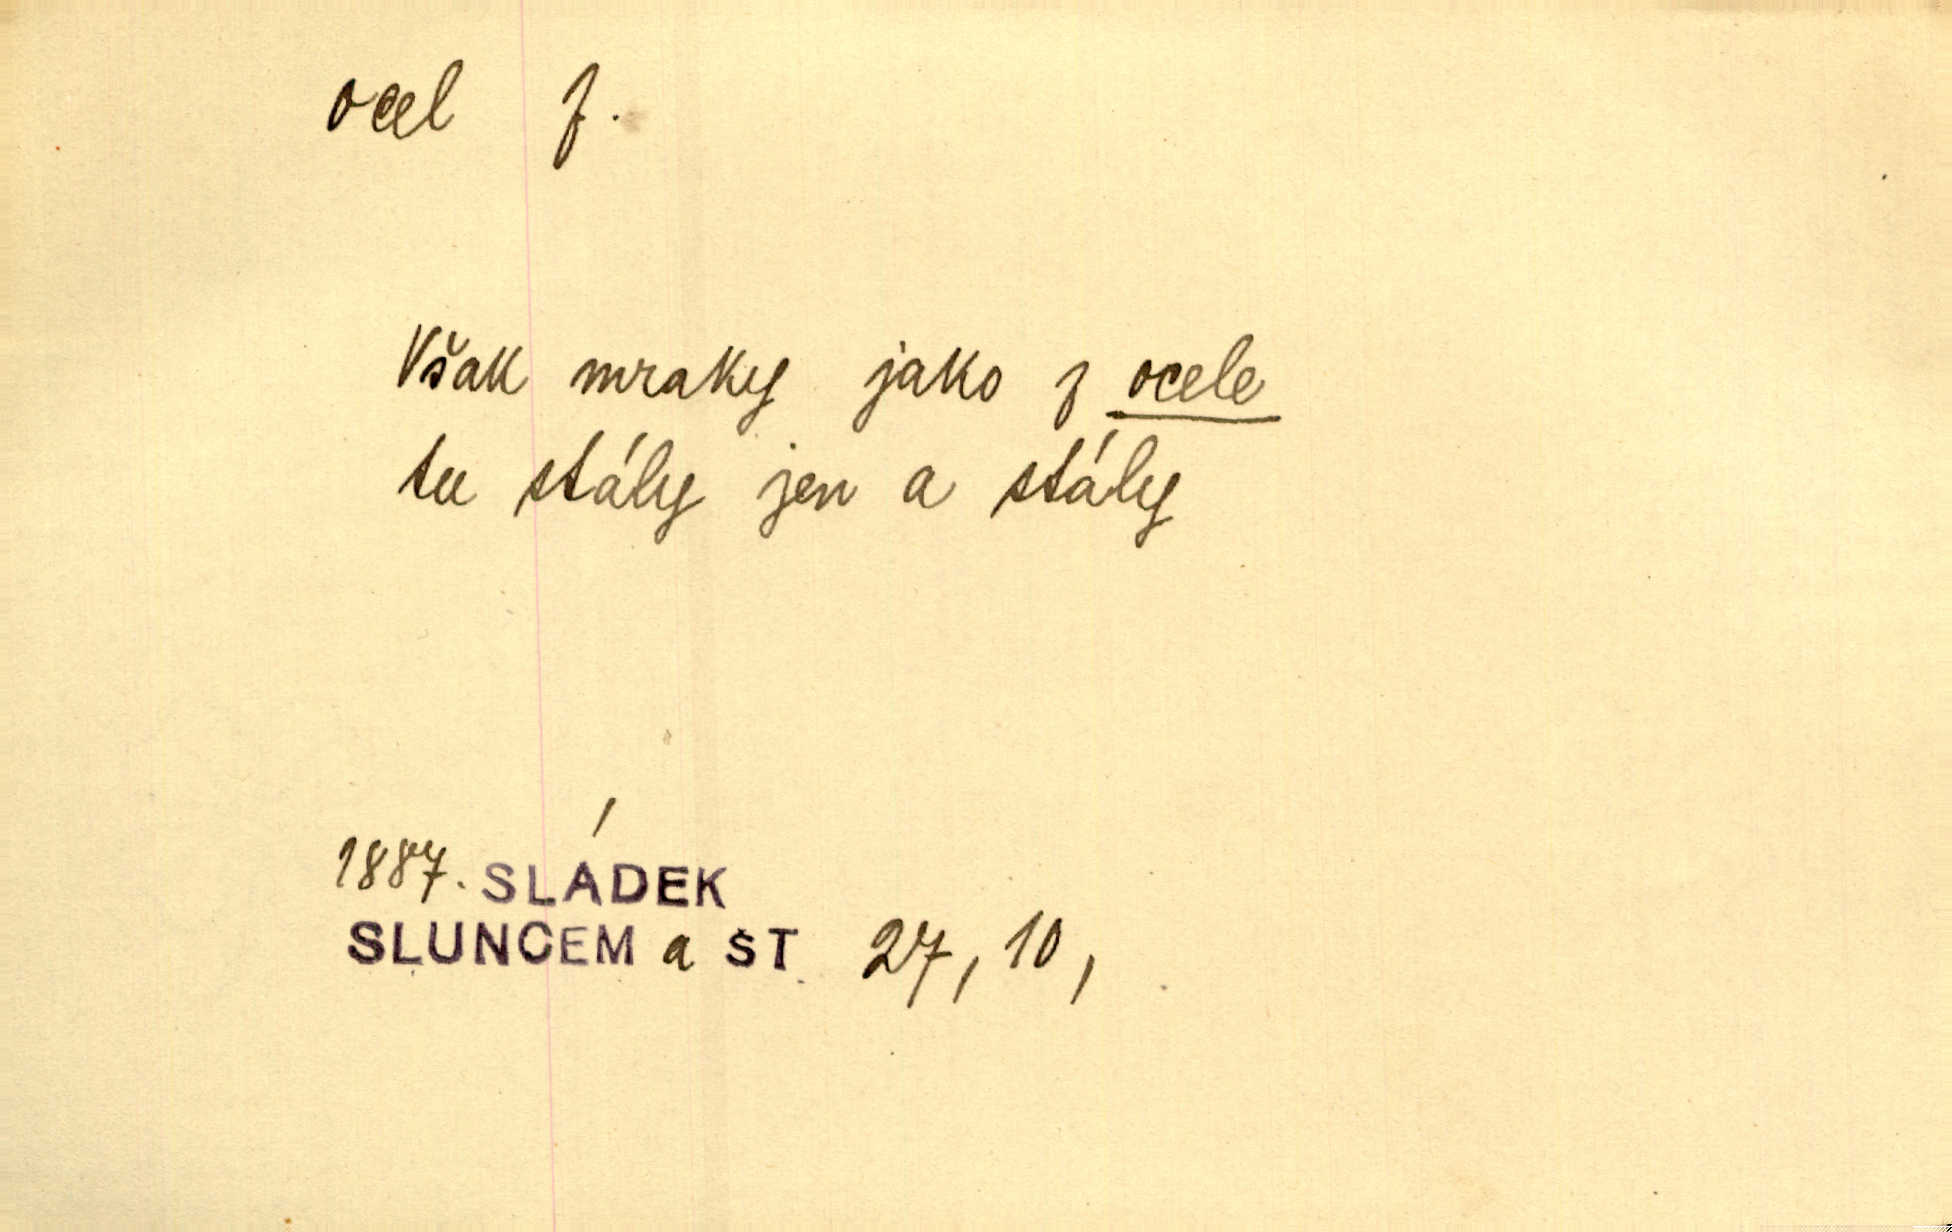 ocel f.
Však mraky jako z ocele
tu stály jen a stály
1887. SLÁDEK
SLUNCEM a ST. 27, 10,